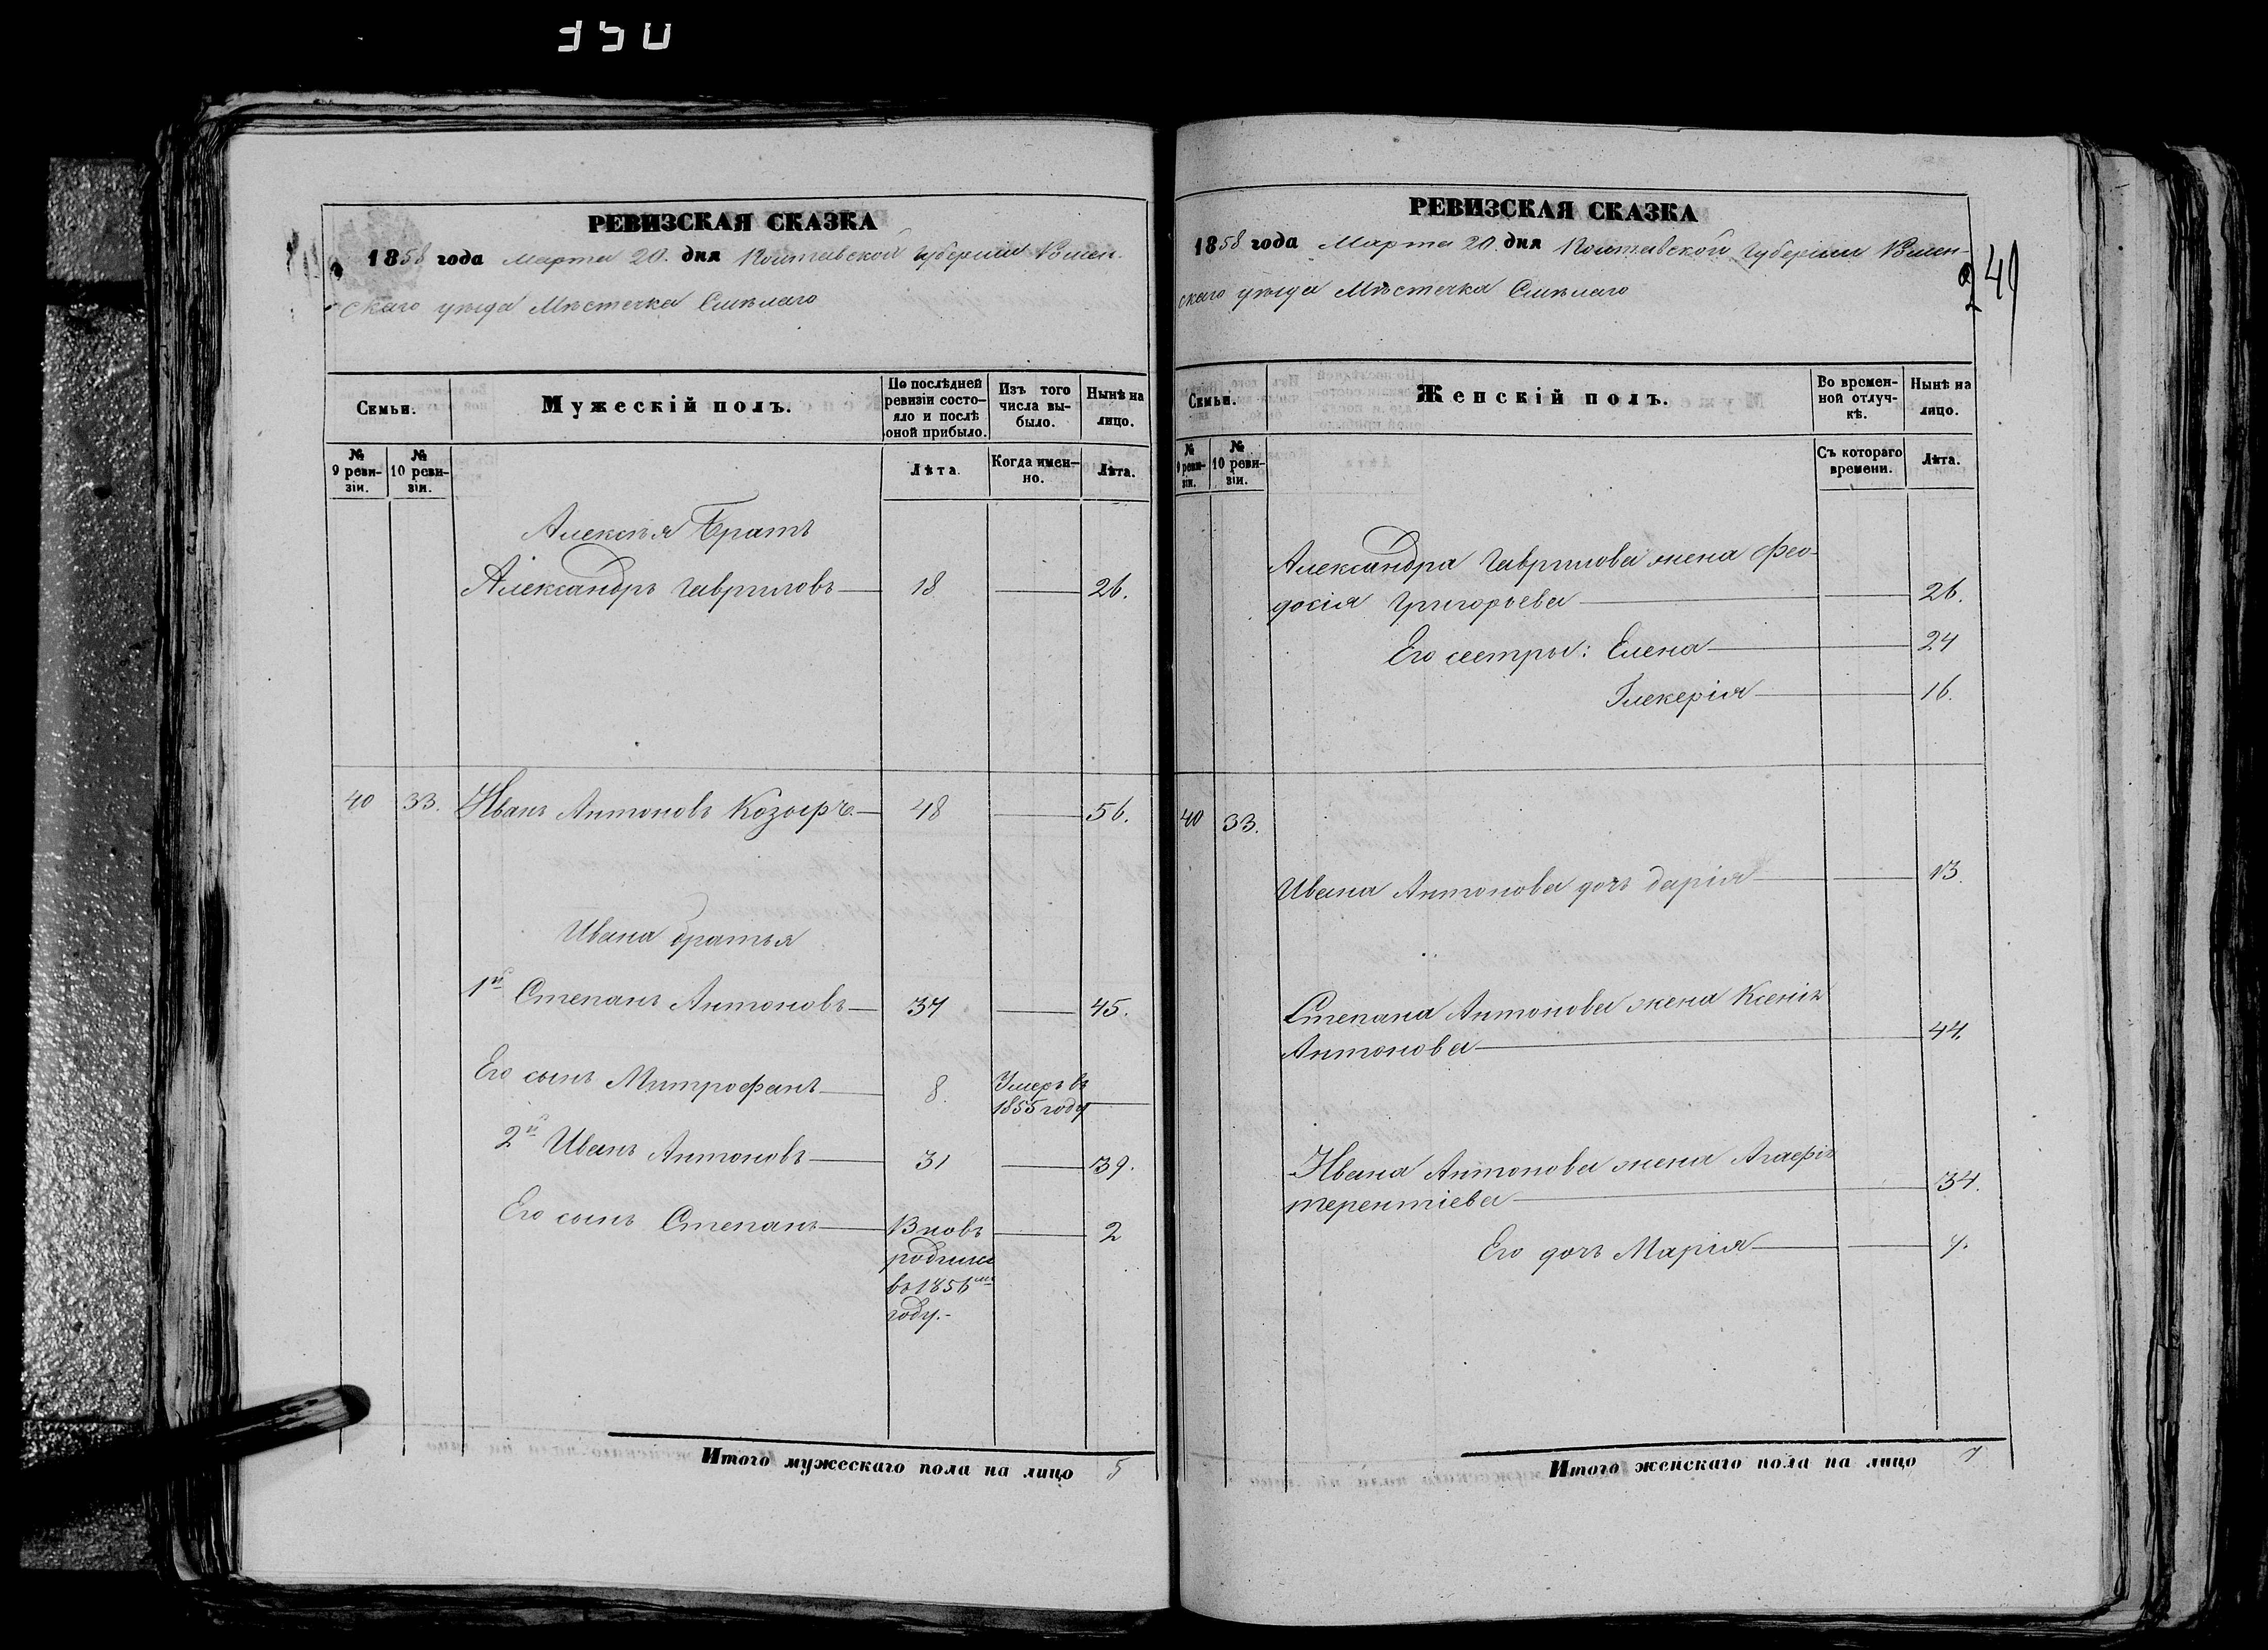 350
РЕВИЗСКАЯ СКАЗКА
1858 года Марта 20. дня Полтавской губернии Ромен-
скаго уѣзда Мѣстечка Смѣлаго
Семьи.
Мужескій полъ.
По послѣдней
ревизіи состо-
яло и послѣ
оной прибыло.
Изъ того
числа вы-
было.
Нынѣ на
лицо.
№
9 реви-
зіи.
№
10 реви-
зіи.
Лѣта.
Когда имен-
но.
Лѣта.
Алексѣя Братъ
Александръ Гавриловъ 18 26.
40 33. Иванъ Антоновъ Козырь. 48 56.
Ивана братья
1й Степанъ Антоновъ 37 45.
Его сынъ Митрофанъ 8. Умеръ въ
1855 году
2й Иванъ Антоновъ 31 39.
Его сынъ Степанъ Вновь 2
родился
въ 1856мъ
году.-
Итого мужескаго пола на лицо 5
РЕВИЗСКАЯ СКАЗКА
1858 года Марта 20. дня Полтавской губерніи Ромен-
скаго уѣзда Мѣстечка Смѣлаго
Семьи.
Женскій полъ.
Во времен-
ной отлуч-
кѣ.
Нынѣ на
лицо.
№
9 реви-
зіи.
№
10 реви-
зіи.
Съ котораго
времени.
Лѣта.
Александра Гаврилова жена Фео-
досія Григорьева 26.
Его сестры: Елена 24
Гликерія 16.
40 33.
Ивана Антонова дочь Дарія 13.
Степана Антонова жена Ксенія
Антонова 44.
Ивана Антонова жена Агафія
Терентіева 34.
Его дочь Марія 4.
Итого женскаго пола на лицо 7